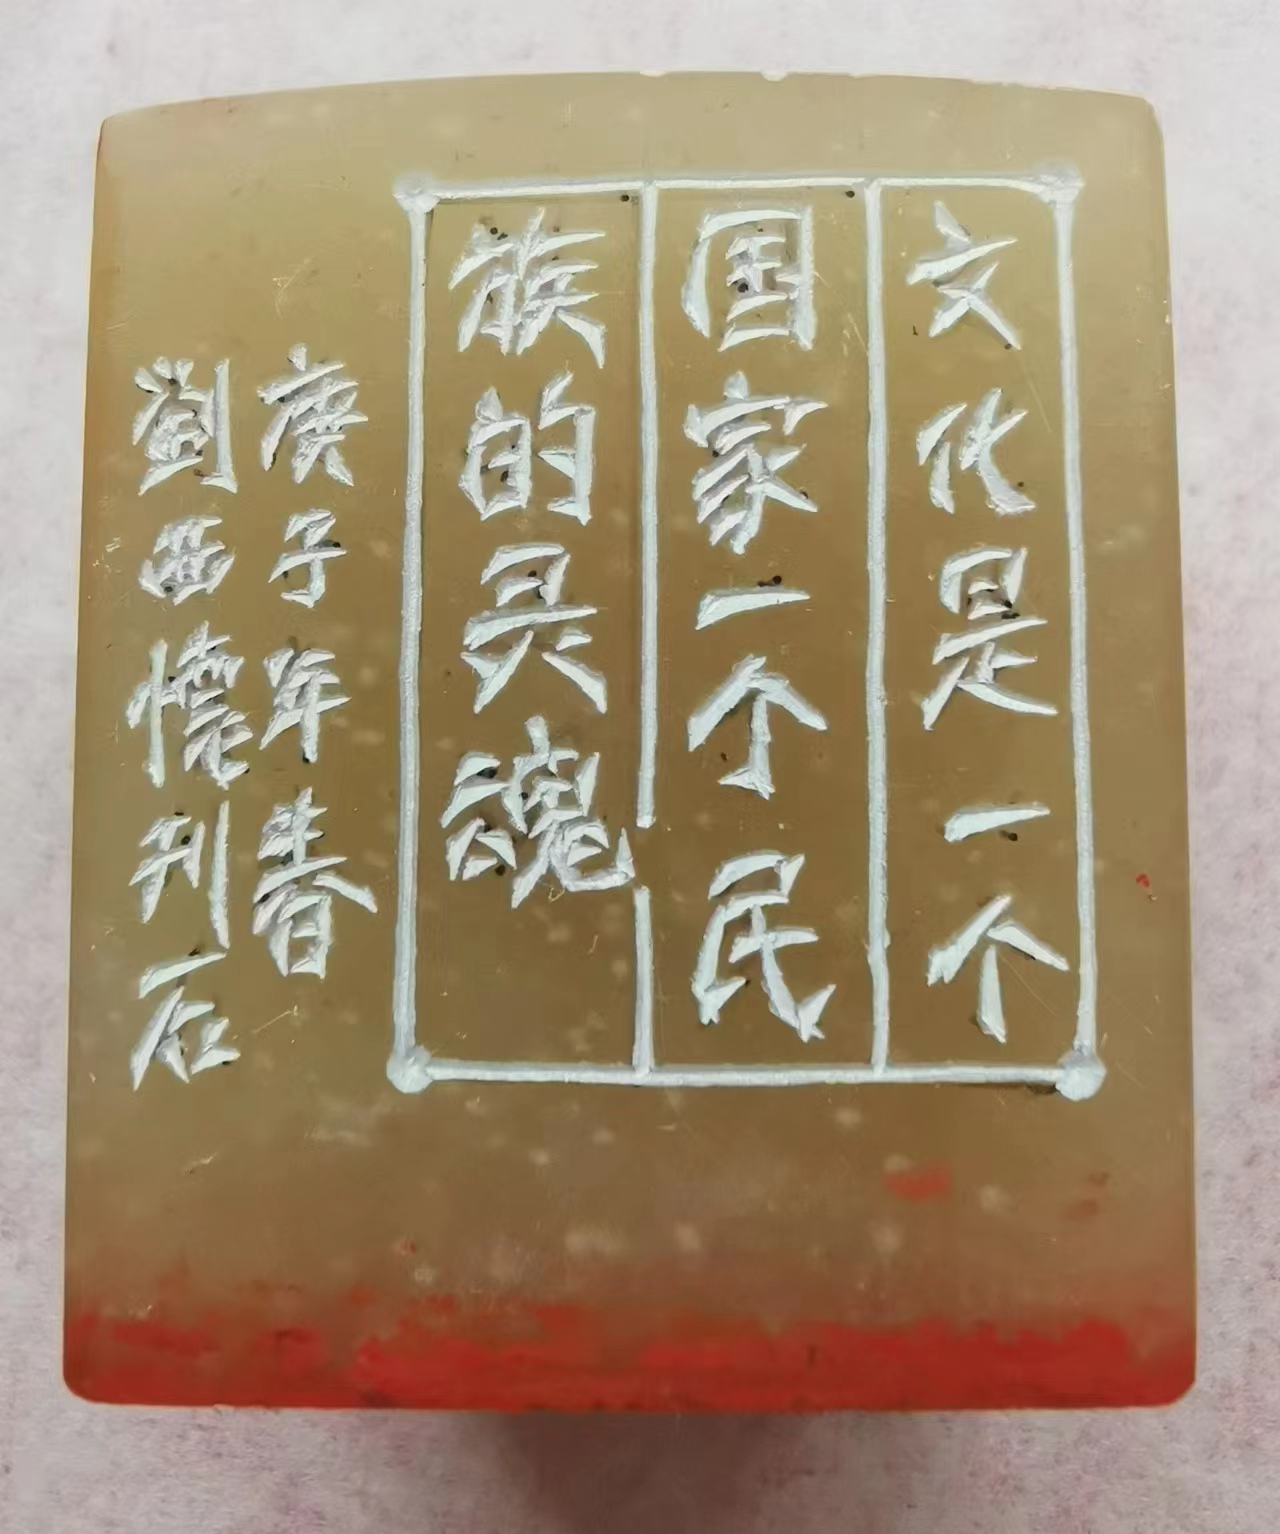 文化是一个
国家一个民
族的灵魂
庚子年春
劉西懷刊石